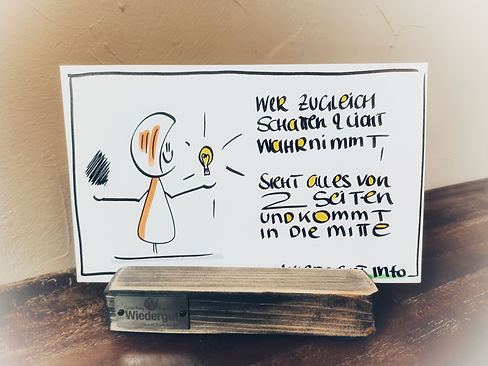 WER ZUGLEICH
SCHATTEN & LICHT
WAHRNIMMT,
SIEHT ALLES VON
2 SEITEN
UND KOMMT
IN DIE MITTE
info
Wiedergut